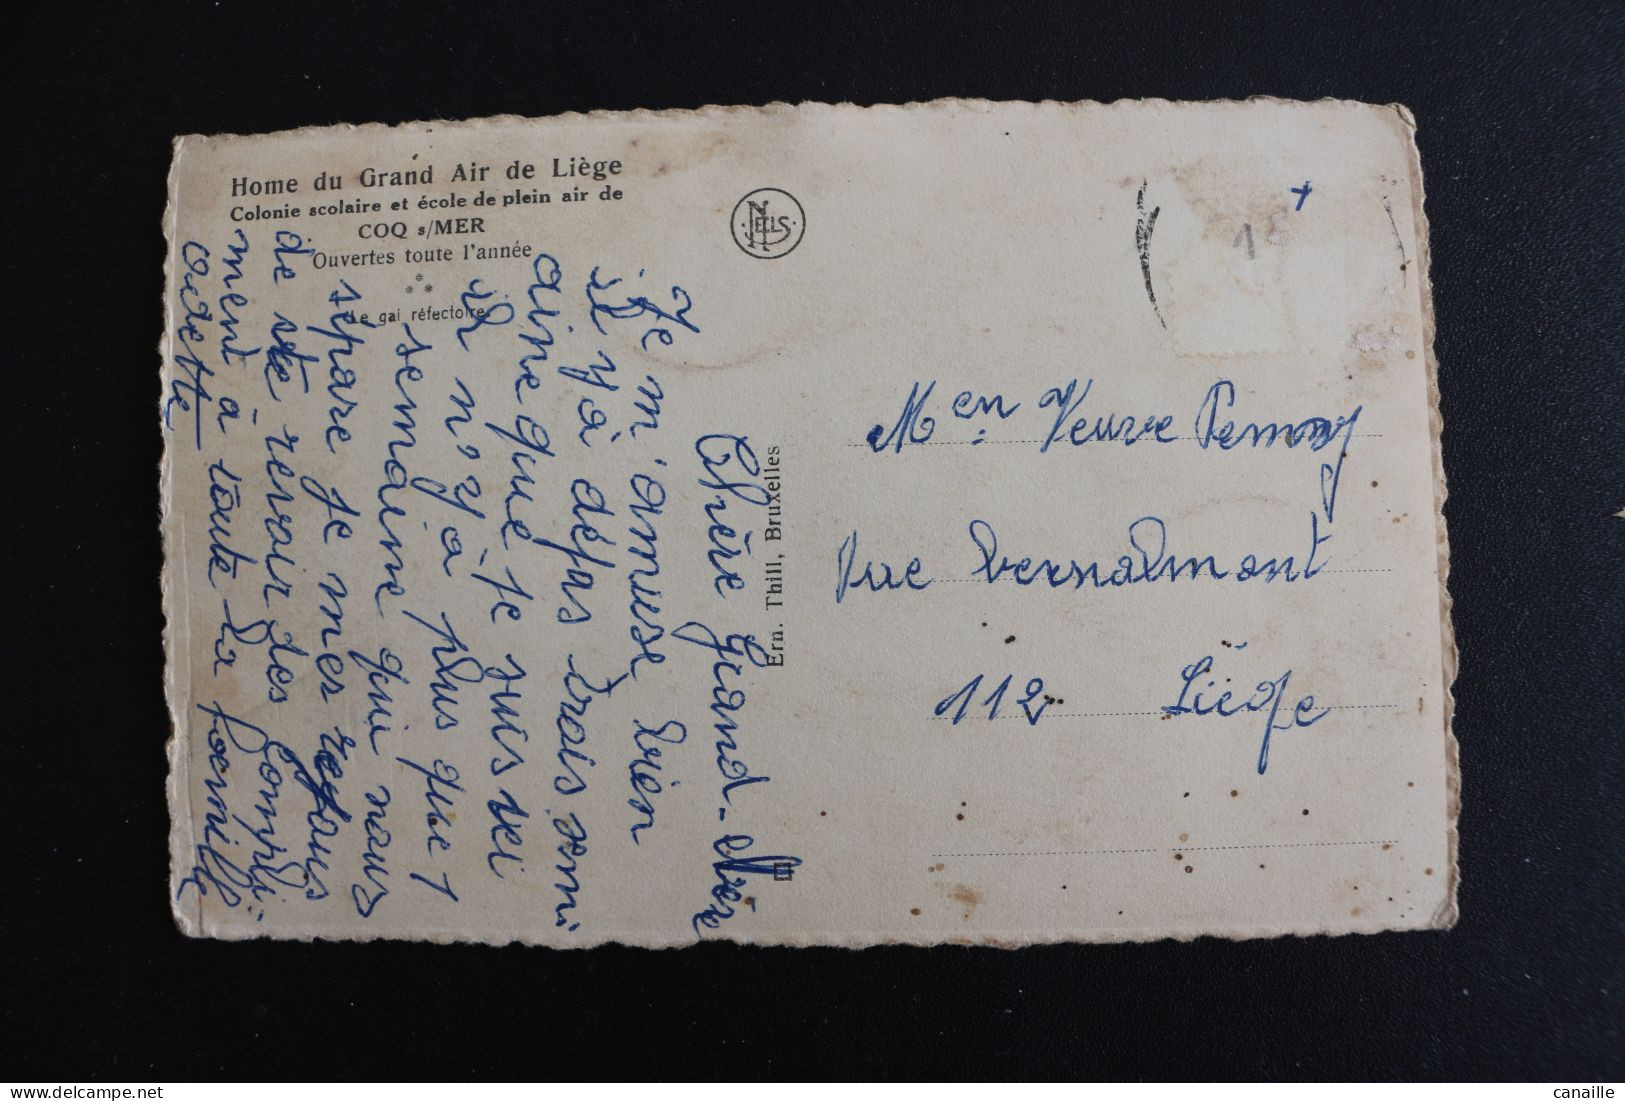 Home du Grand Air de Liège
Colonie scolaire et école de plein air de
COQ s/MER
Ouvertes toute l'année
Le gai réfectoire
NELS
Ern. Thill, Bruxelles
Chère Grand-Mère
Je m'amuse bien
il y'a déjas trois semi
aine que je suis ici
il n'y a plus que 1
semaine qui nous
sépare je me réjouis
de te revoir des compli-
ment à toute la famille
Odette
15
Veuve
rue
112 Liége
canaille